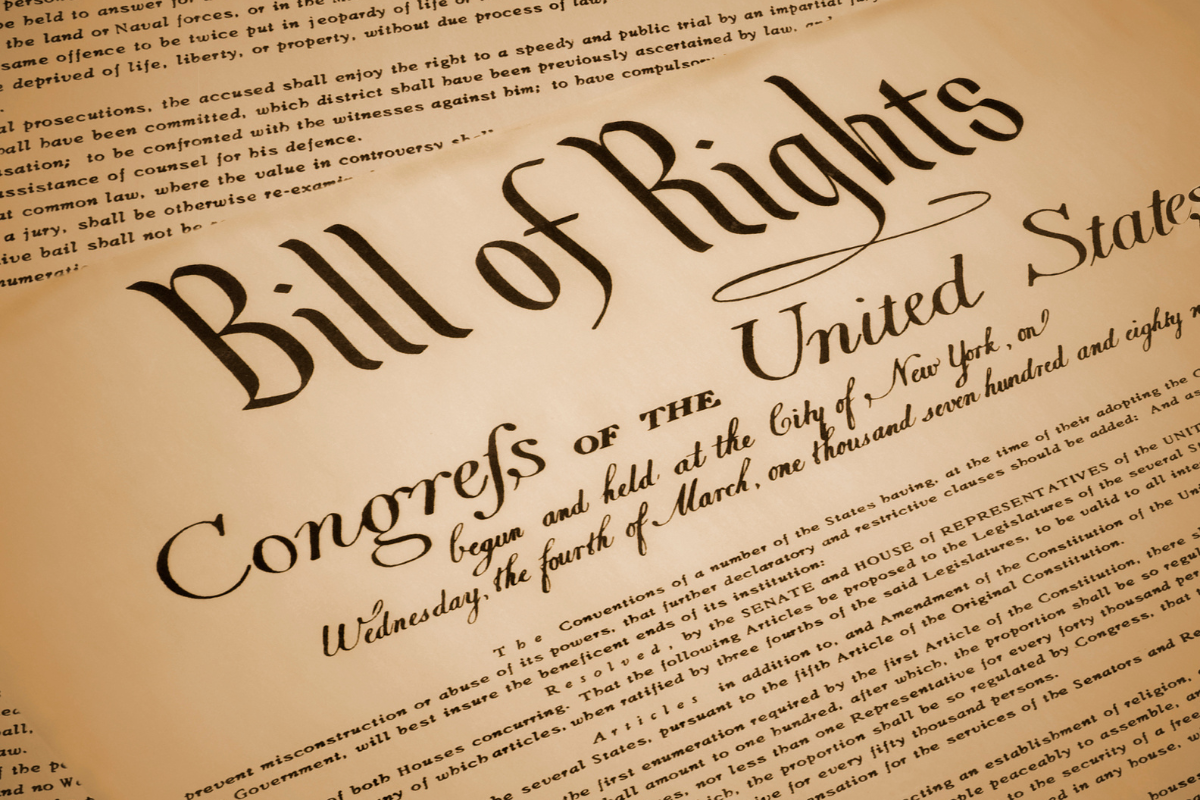 be held to answer for
the land or Naval forces, or in the
same offence to be twice put in jeopardy of life or
deprived of life, liberty, or property, without due process of law;
prosecutions, the accused shall enjoy the right to a speedy and public trial by an impartial
have been committed, which district shall have been previously ascertained by law, and
to be confronted with the witnesses against him; to have compulsory
assistance of counsel for his defence.
common law, where the value in controversy
a jury, shall be otherwise
bail shall not be
Bill of Rights
Congreſs OF THE United States
begun and held at the City of New York, on
Wednesday, the fourth of March, one thousand seven hundred and eighty
The Conventions of a number of the States having, at the time of their adopting the
prevent misconstruction or abuse of its powers, that further declaratory and restrictive clauses should be added: And as
Government, will best insure the beneficent ends of its institution:
Resolved, by the SENATE and HOUSE of REPRESENTATIVES of the
of both Houses concurring. That the following Articles be proposed to the Legislatures of the several
of which articles, when ratified by three fourths of the said Legislatures, to be valid to all
Articles in addition to, and Amendment of the Constitution of the
several States, pursuant to the fifth Article of the Original Constitution.
the first enumeration required by the first Article of the Constitution, there
amount to one hundred, after which, the proportion shall be so
nor less than one Representative for every forty thousand
the proportion shall be so regulated by Congress, that
for every fifty thousand persons.
for the services of the Senators and
an establishment of religion,
peaceably to assemble,
to the security of a
in any house,